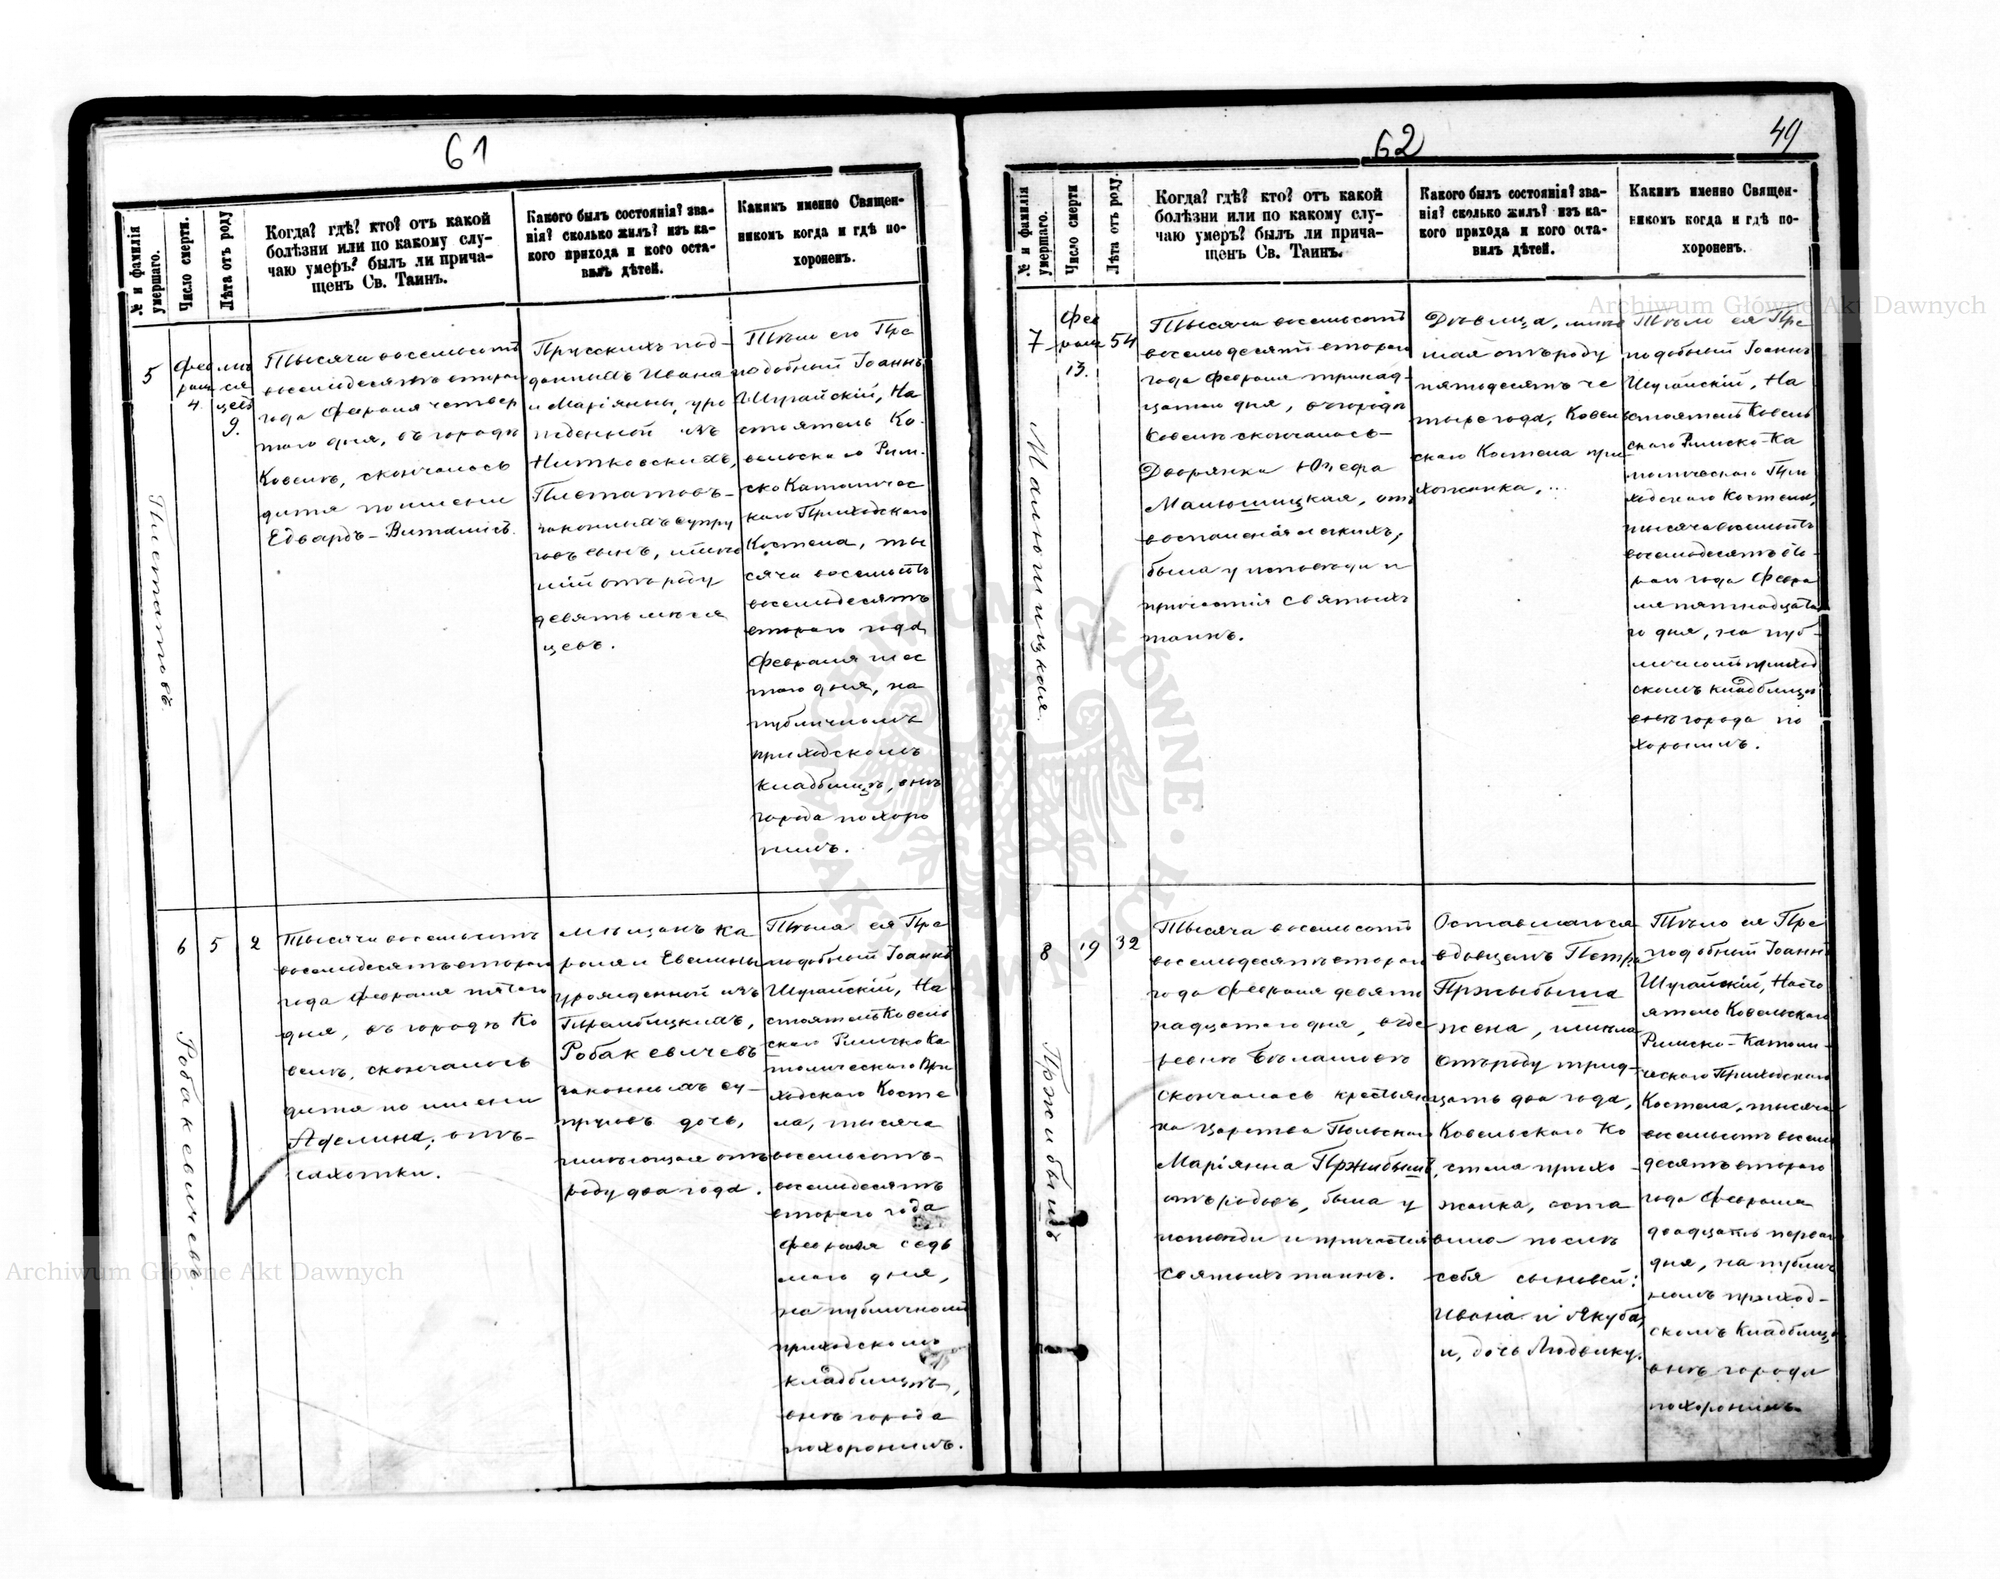 61
№ и фамилія умершаго.
Число смерти.
Лѣта отъ роду
Когда? гдѣ? кто? отъ какой
болѣзни или по какому слу-
чаю умеръ? былъ ли прича-
щенъ Св. Таинъ.
Какого былъ состоянія? зва-
нія? сколько жилъ? изъ ка-
кого прихода и кого оста-
вилъ дѣтей.
Какимъ именно Священ-
никомъ когда и гдѣ по-
хороненъ.
5
Плетатовъ.
Фев
раля
4.
мѣ
ся
цевъ
9.
Тысяча восемьсотъ
восемьдесятъ второго
года Февраля четвер
того дня, въ городѣ
Ковелѣ, скончалось
дитя по имени
Едвардъ-Виталисъ.
Прусскихъ под-
данныхъ Ивана
и Маріянны, уро
жденной изъ
Нитковскихъ,
Плетатовъ-
законныхъ супру
говъ сынъ, имѣю
щій отъ роду
девять мѣся
цевъ.
Тѣло его Пре
подобный Іоаннъ
Шугайскій, На
стоятель Ко-
вельского Рим-
ско Католичес
кого Приходского
Костела, ты
сяча восемьсотъ
восемьдесятъ
второго года
Февраля шес
того дня, на
публичномъ
приходскомъ
кладбищѣ, внѣ
города похоро
нилъ.
6
Робакевичевъ
5
2
Тысяча восемьсотъ
восемьдесятъ второго
года Февраля пятого
дня, въ городѣ Ко
велѣ, скончалось
дитя по имени
Аделина, отъ-
сухотки.
Мѣщанъ Ка
роля и Евелины
урожденной изъ
Трембицкихъ,
Робакевичевъ
законныхъ су-
пруговъ дочь,
имѣющая отъ
роду два года.
Тѣло ея Пре
подобный Іоаннъ
Шугайскій, На
стоятель Ковель
ского Римско Ка
толического При
ходского Косте
ла, тысяча
восемьсотъ-
восемьдесятъ
второго года
Февраля седь
мого дня,
на публичномъ
приходскомъ
кладбищѣ,
внѣ города
похоронилъ.
62
49
№ и фамилія умершаго.
Число смерти
Лѣта отъ роду.
Когда? гдѣ? кто? отъ какой
болѣзни или по какому слу-
чаю умеръ? былъ ли прича-
щенъ Св. Таинъ.
Какого былъ состоянія? зва-
нія? сколько жилъ? изъ ка-
кого прихода и кого оста-
вилъ дѣтей.
Какимъ именно Священ-
никомъ когда и гдѣ по-
хороненъ.
7
Малюшицкая.
Фев
раля
13.
54
Тысяча восемьсотъ
восемьдесятъ второго
года Февраля тринад-
цатого дня, въ городѣ
Ковелѣ скончалась-
Дворянка Юзефа
Малюшицкая, отъ
воспаленія легкихъ,
была у исповѣди и
причастія святыхъ
таинъ.
Дѣвица, имѣю
щая отъ роду
пятьдесятъ че
тыре года, Ковель
ского Костела при
хожанка,
Тѣло ея Пре
подобный Іоаннъ
Шугайскій, На
стоятель Ковель
ского Римско-Ка
толического При
ходского Костела,
тысяча восемьсотъ
восемьдесятъ вто-
рого года Февра
ля пятнадцато
го дня, на пуб-
личномъ приход
скомъ кладбищѣ
внѣ города по
хоронилъ.
8
Пржибышъ
19
32
Тысяча восемьсотъ
восемьдесятъ второго
года Февраля девят
надцатого дня, въ де
ревнѣ Бѣлашовѣ
скончалась крестьян
ка Царства Польского
Маріянна Пржибышъ,
отъ родовъ, была у
исповѣди и причастія
святыхъ таинъ.
Оставшагося
вдовцемъ Петра
Пржыбыша
жена, имѣла
отъ роду трид-
цать два года,
Ковельского Ко
стела прихо-
жанка, оста
вила послѣ
себя сыновей:
Ивана и Якуба,
и, дочь Людвику.
Тѣло ея Пре
подобный Іоаннъ
Шугайскій, Насто
ятель Ковельского
Римско-Католи-
ческого Приходского
Костела, тысяча
восемьсотъ восемь
десятъ второго
года Февраля
двадцать первого
дня, на публич
номъ приход-
скомъ кладбищѣ
внѣ города
похоронилъ.
Archiwum Główne Akt Dawnych
Archiwum Główne Akt Dawnych